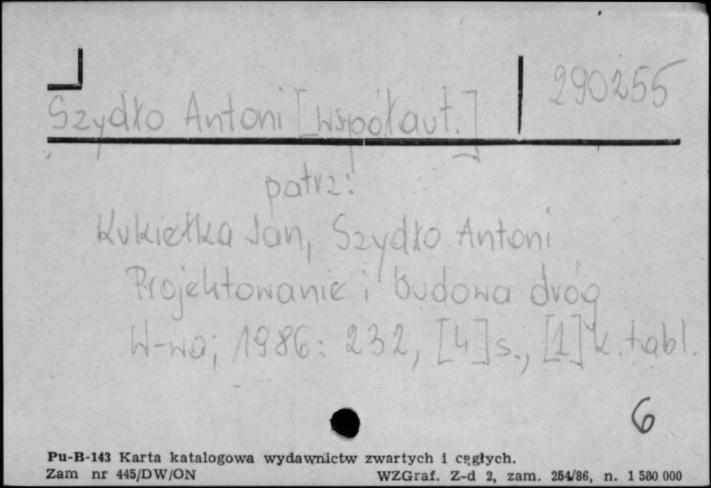 290255
Szydło Antoni [współaut.]
patrz:
Kukiełka Jan, Szydło Antoni
Projektowanie i budowa dróg
W-wa; 1986: 232, [4] s., [1] k. tabl.
6
Pu-B-143 Karta katalogowa wydawnictw zwartych i cęgłych.
Zam nr 445/DW/ON WZGraf. Z-d 2, zam. 254/86, n. 1 580 000